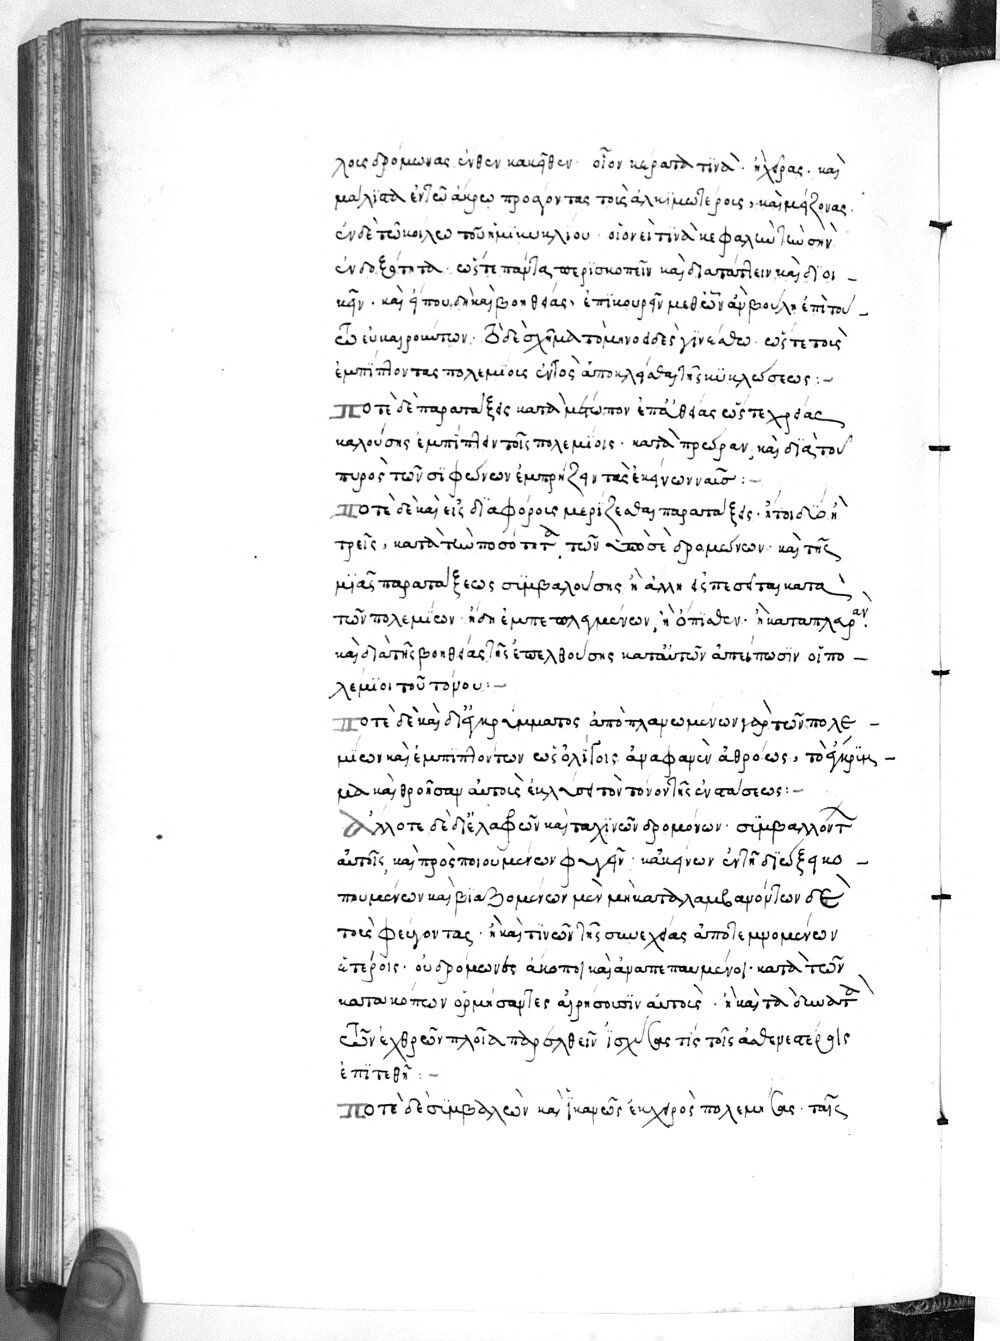 λοις δρόμωνας ἔνθεν κακεῖθεν· οἷον κέρατα τινὰ· ἢ χεῖρας· καὶ
μάλιστα ἐν τῶ ἄκρω προάγοντας τοὺς ἀλκιμωτέροις, καὶ μείζονας·
ἐν δὲ τῶ κοίλω τοῦ ἡμικυκλίου· οἱονεὶ τινὰ κεφαλὴν τὴν σὴν
ἐνδοξότητα· ὥστε πάντα περισκοπεῖν καὶ διατάττειν καὶ διοι-
κεῖν· καὶ εἴ που δεῖ καὶ βοηθείας, ἐπικουρεῖν μεθ' ὧν ἂν βούλη ἐπὶ τού-
τω εὐκαιρούντων· τὸ δὲ σχῆμα τὸ μηνοειδὲς γινέσθω· ὥστε τοὺς
ἐμπίπτοντας πολεμίοις ἐντὸς ἀποκλείσθαι τῆς κυκλώσεως:-
Ποτὲ δὲ παρατάξεις κατὰ μέτωπον ἐπ' εὐθείας ὥστε χρείας
καλούσης ἐμπίπτειν τοῖς πολεμίοις· κατὰ πρώραν, καὶ διὰ τοῦ
πυρὸς τῶν σιφώνων ἐμπρήζειν τὰς ἐκείνων ναῦς:-
Ποτὲ δὲ καὶ εἰς διαφόροις μερίζεσθαι παρατάξεις· ἤτοι δύο ἢ
τρεῖς, κατὰ τὴν ποσότητα, τῶν ὑπὸ σὲ δρομώνων· καὶ τῆς
μιᾶς παρατάξεως συμβαλούσης ἡ ἄλλη ἐπεισπεσεῖται κατὰ
τῶν πολεμίων· ἤδη ἐμπεπλεγμένων, ἢ ὄπισθεν· ἢ κατὰ πλευρὰν·
καὶ διὰ τῆς βοηθείας τῆς ἐπελθούσης κατ' αὐτῶν ἀπείπωσιν οἱ πο-
λέμιοι τοῦ τόνου:-
Ποτὲ δὲ καὶ δι' ἐγκρύμματος ἀποπλανωμένων γὰρ τῶν πολε-
μίων καὶ ἐμπιπτόντων ὡς ὀλίγοις ἀναφανὲν ἀθρόως, τὸ ἔγκρυμ-
μα καὶ θροῆσαν αὐτοὺς ἐκλύσει τὸν τόνον τῆς ἐνστάσεως:-
Ἄλλοτε δὲ δι' ἐλαφρῶν καὶ ταχινῶν δρομόνων· συμβαλλόντων
αὐτοῖς, καὶ προσποιουμένων φυγεῖν· κἀκείνων ἐν τῆ διώξει κο-
πουμένων καὶ βιαζομένων μὲν μὴ καταλαμβανόντων δὲ
τοὺς φεύγοντας· ἢ καὶ τινῶν τῆς συνεχείας ἀποτεμνομένων
ἑτέροις· οὐ δρόμωνες ἄκοποι καὶ ἀναπεπαυμένοι· κατὰ τῶν
κατακόπων ὁρμήσαντες αἱρήσουσιν αὐτοὺς· ἢ καὶ τὰ δυνατὰ
τῶν ἐχθρῶν πλοῖα παρελθεῖν ἰσχύσας τίς τοῖς ἀσθενεστέροις
ἐπιτεθῆ:-
Ποτὲ δὲ συμβαλεῖν καὶ ἱκανῶς ἐκ χειρὸς πολεμήσας· ταῖς